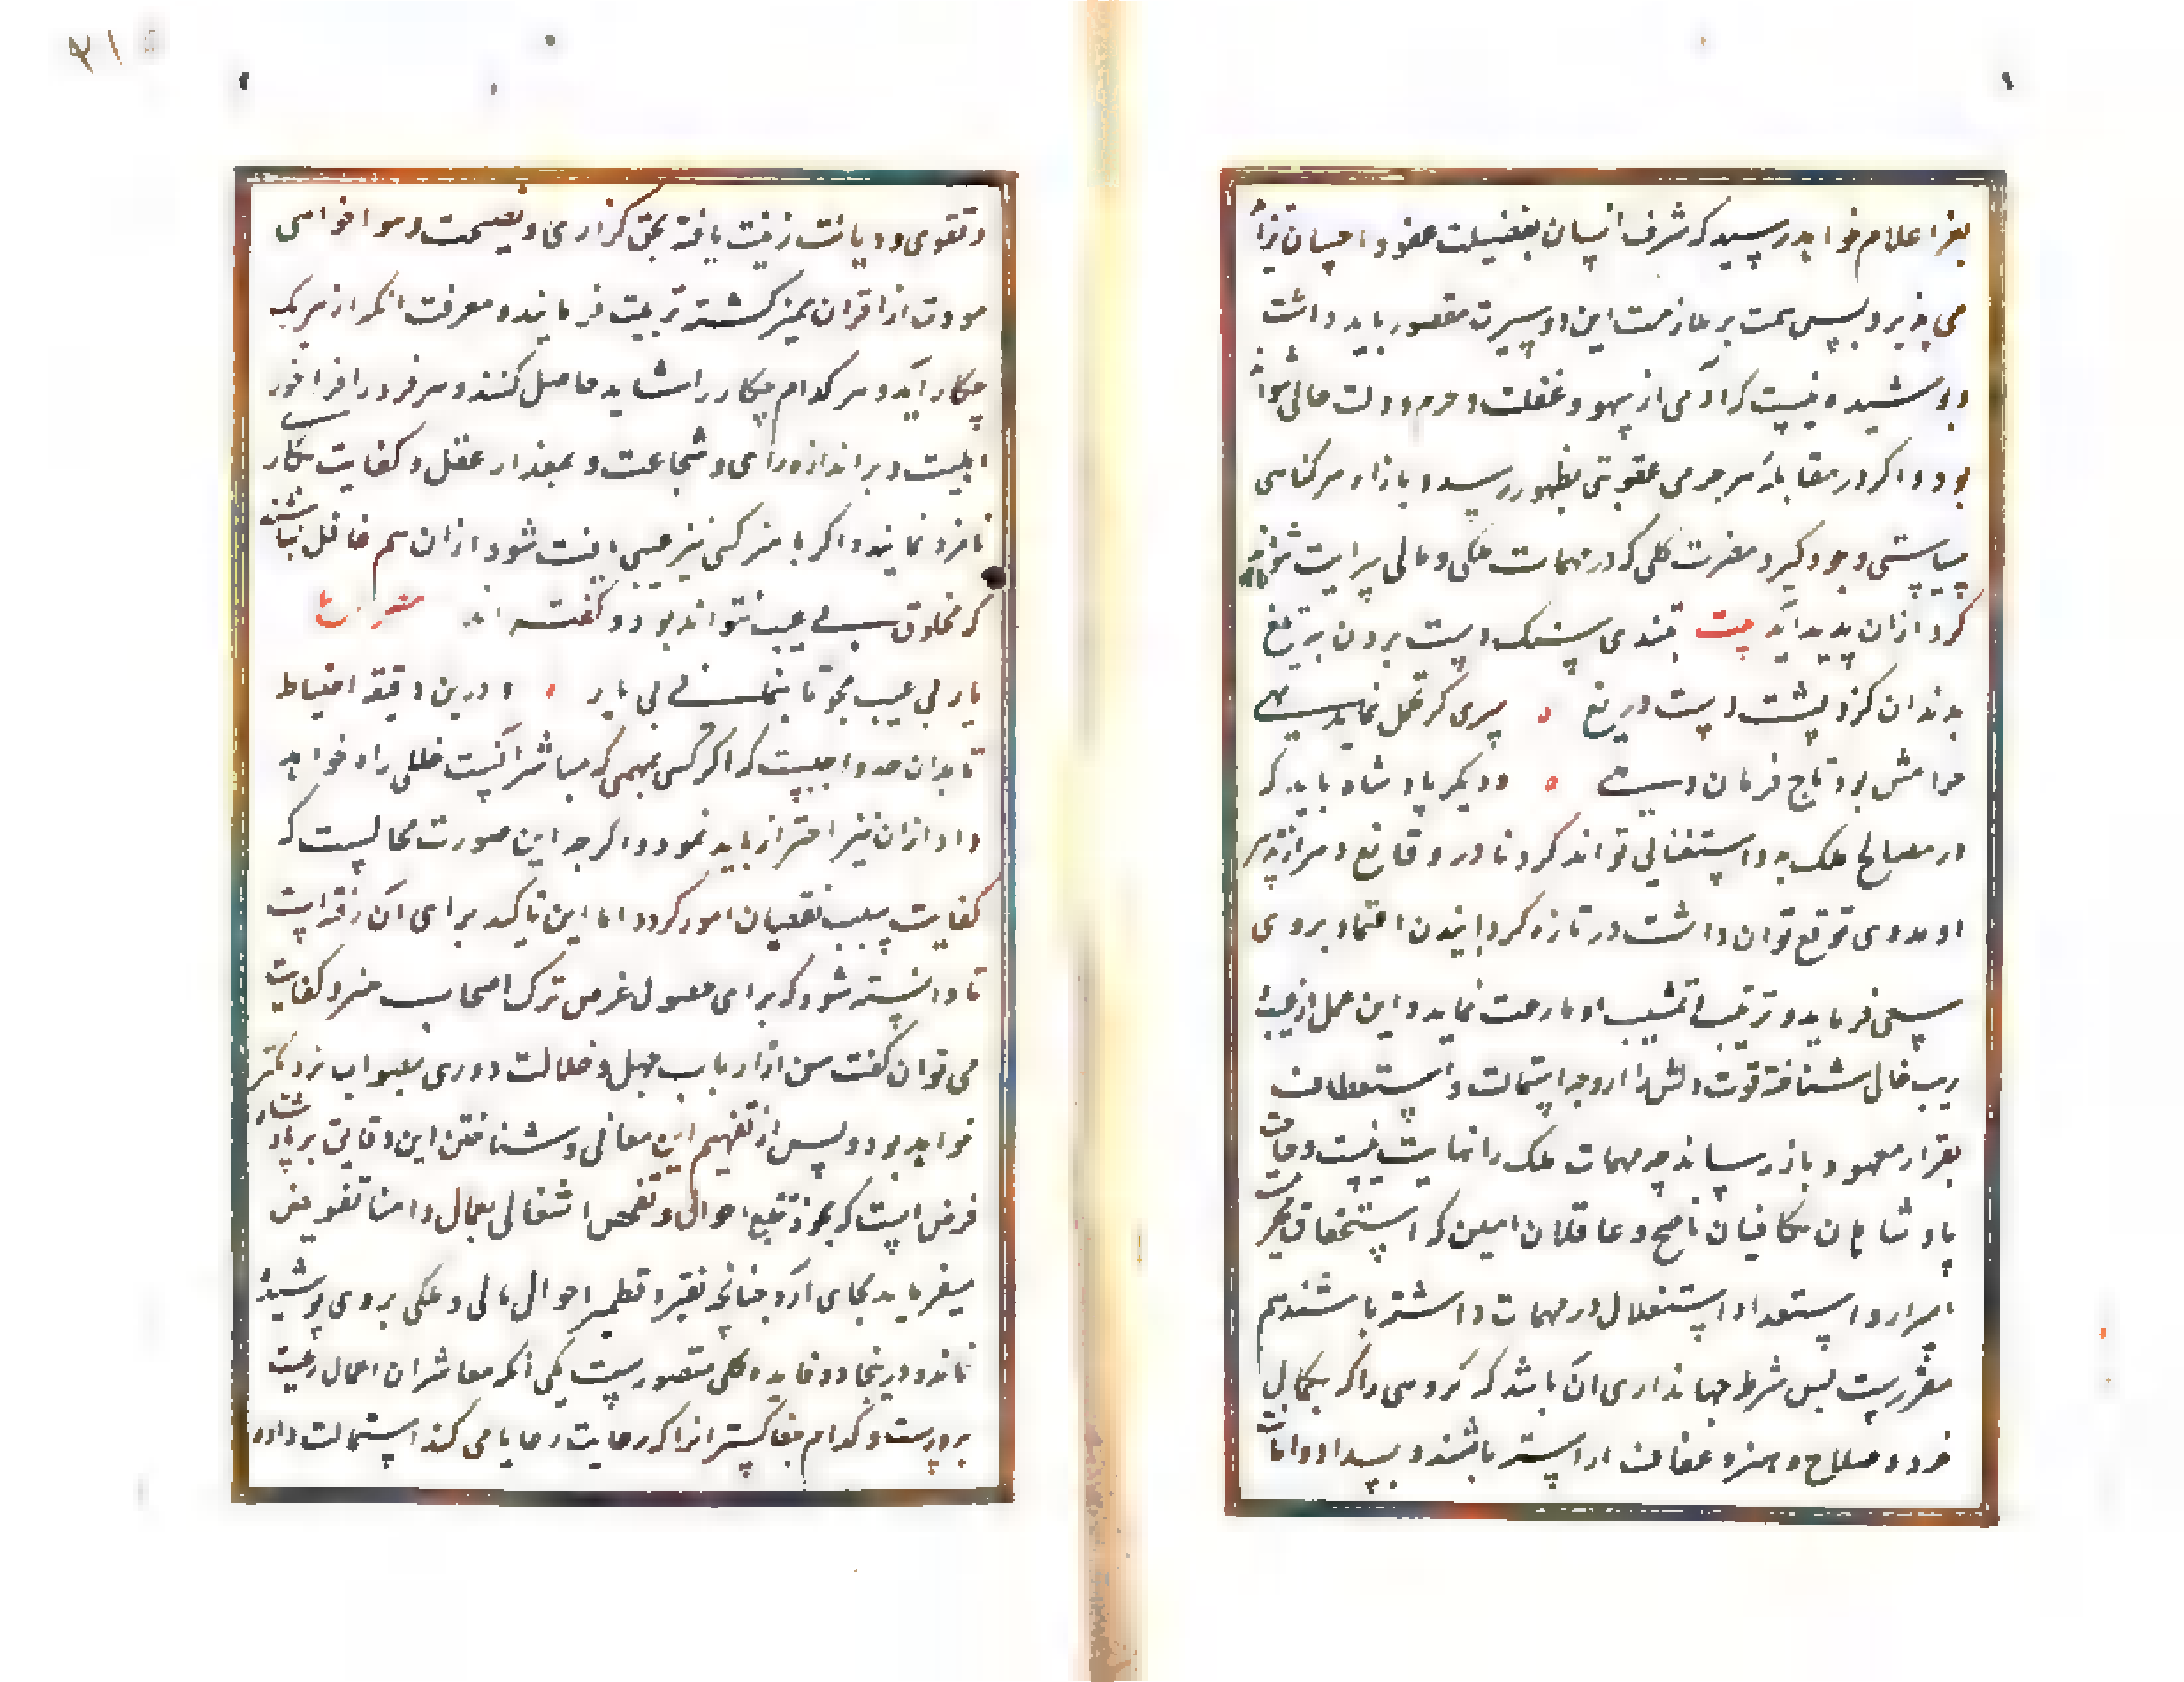 بعز اعلام خواهد رسید که شرف انسان بفضیلت عفو و احسان تزاید
می پذیرد پس همت بر ملازمت این دو سیرت مقصور باید داشت
و پوشیده نیست که آدمی از سهو و غفلت و جرم و زلت خالی نتواند
بود و اگر در مقابله هر جرمی عقوبتی بظهور رسد و بازاء هر گناهی
سیاستی وجود گیرد مضرت کلی که در مهمات ملکی و مالی سرایت تواند
کرد ازان پدید آید بیت بتندی سبک دست بردن بتیغ
بدندان گزد پشت دست دریغ سری کر تحمل نماید تهی
حرامش بود تاج فرمان دهی و دیگر پادشاه باید که
در مصالح ملک بدو استغنایی تواند کرد تا در وقایع و حوادث از
او مددی توقع توان داشت در تازه گردانیدن اعتماد بروی
سعی فرماید و ترتیب تمشیت او مرحمت نماید و این عمل از عیب
ریب خالی شناخته قوت دلش را از وجه استمالت و استعطاف
بقرار معهود باز رساند چه مهمات ملک را نهایت نیست و حاجت
پادشاهان بکافیان ناصح و عاقلان امین که استحقاق محرمیت
اسرار و استعداد استقلال در مهمات داشته باشند هم
مقررست پس شرط جهانداری آن باشد که گروهی را که بکمال
خرد و صلاح و هنر و عفاف آراسته باشند و بسداد و امانت
و تقوی و دیانت زینت یافته بحق گزاری و نصیحت و هوا خواهی
مودت از اقران ممیز گشته تربیت فرمایند و معرفت آنکه از هر یک
چکار آید و هر کدام چکار را شاید حاصل کنند و هر فرد را فراخور
اهلیت و بر اندازه رای و شجاعت و بمقدار عقل و کفایت بکاری
نامزد نمایند و اگر با هنر کسی نیز عیبی یافت شود ازان هم غافل نباشند
که مخلوق بی عیب نتواند بود و گفته اند
یار بی عیب مجو تا بنمانی بی یار و درین دقیقه احتیاط
تا بدان حد واجبست که اگر کس بهمی که مباشر آنست خللی راه خواهد
داد ازان نیز احتراز باید نمود و اگر چه این صورت محالیست که
کفایت سبب نقصان امور گردد اما این تاکید برای آن رفته است
تا دانسته شود که برای حصول غرض ترک اصحاب هنر و کفایت
می توان گفت پس از ارباب جهل و ضلالت دوری بصواب نزدیکتر
خواهد بود و پس از تفهیم این معانی و شناختن این دقایق بر پادشاه
فرض است که بخود تتبع احوال و تفحص اشغالی بعمال و امنا تفویض
میفرماید بجای آرد چنانچه نقیر و قطمیر احوال مالی و ملکی بروی پوشیده
نماند و درینجا دو فایده کلی متصورست یکی آنکه معاشران اعمال رعیت
پرورست و کدام جفا گستر آنرا که رعایت رعایا می کند استمالت داده